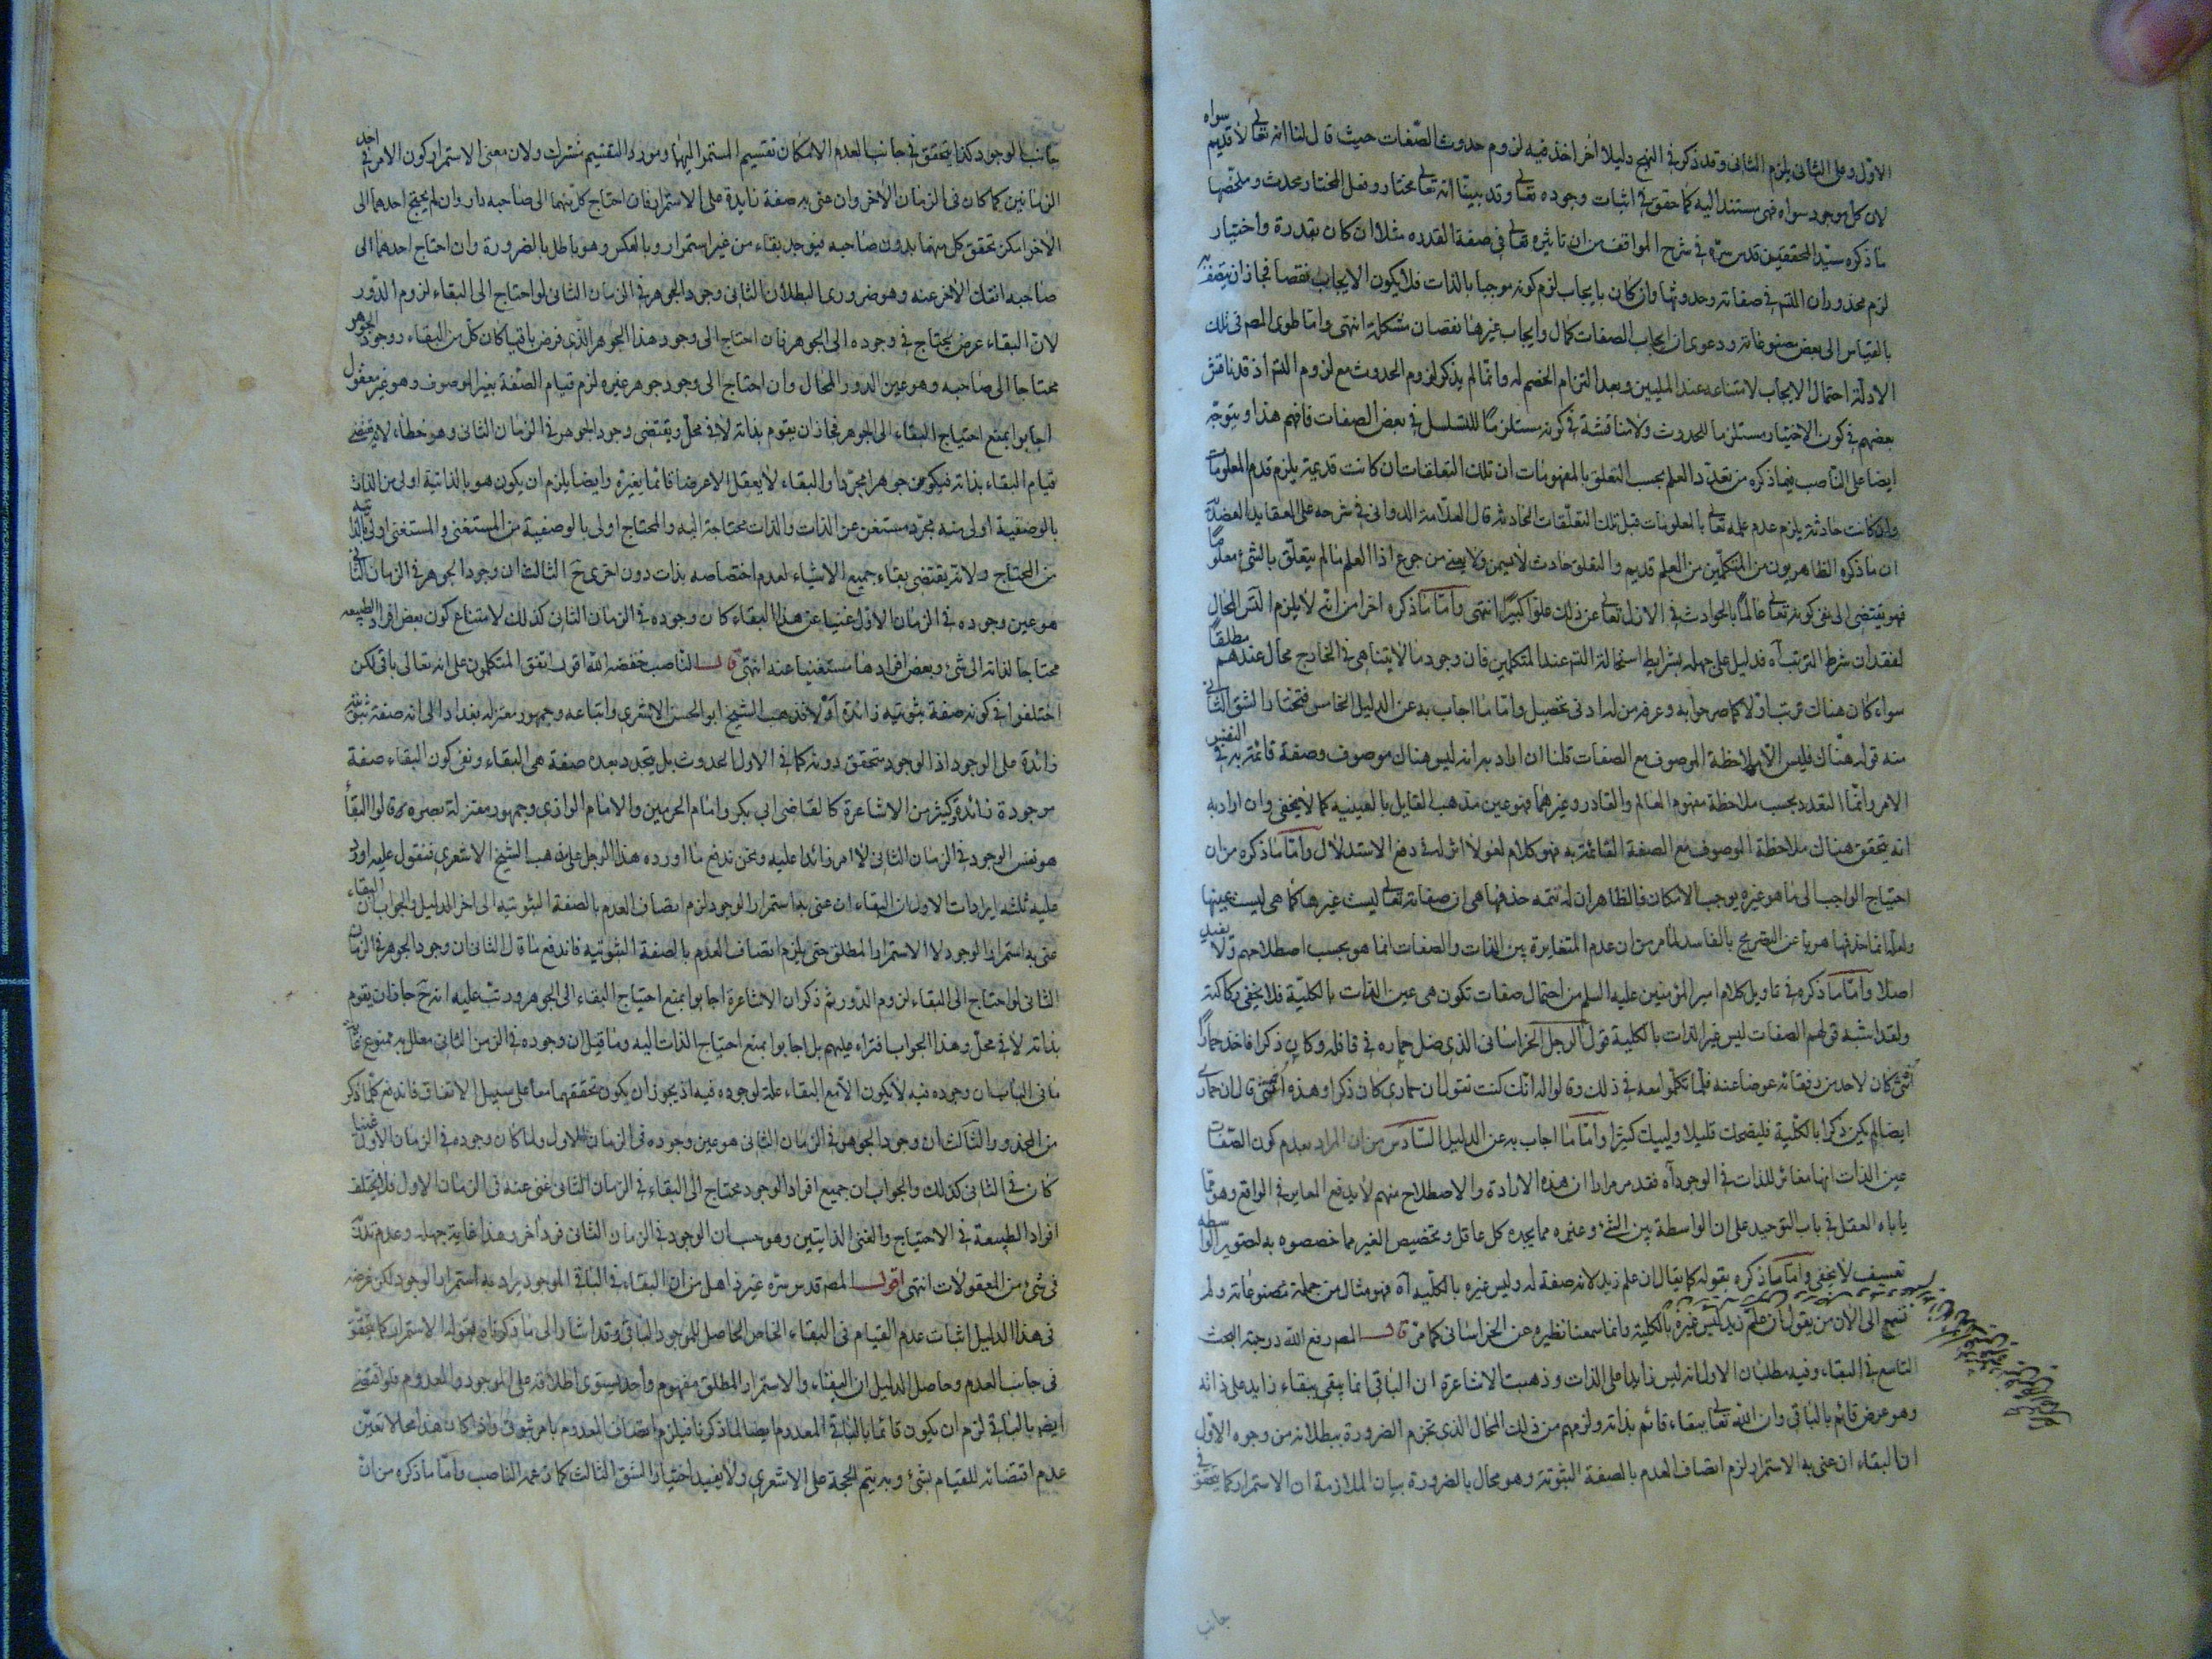 الاول وعلى الثانى يلزم الثانى وقد ذكر فى النهج دليلا اخر اخذ فيه لزوم حدوث الصفات حيث قال لنا انه تعالى لا قديم سواه
لان كل موجود سواه فهو مستند اليه كما حقق فى اثبات وجوده تعالى وقد بينا انه تعالى مختار وفعل المختار محدث وملخصها
ما ذكره سيد المحققين قدس سره فى شرح المواقف من ان تاثيره تعالى فى صفة القدره مثلا ان كان بقدرة واختيار
لزم محذوران التسه فى صفاته وحدوثها وان كان بايجاب لزم كونه موجبا بالذات فلا يكون الايجاب نقصا فجاز ان يتصف به
بالقياس الى بعض مصنوعاته ودعوى ان ايجاب الصفات كمال وايجاب غيرها نقصان مشكلة انتهى وانما طوى المصه فى تلك
الادلة احتمال الايجاب لامتناعه عند المليين وبعد التزام الخصم له وانما لم يذكر لزوم الحدوث مع لزوم التسه اذ قد ناقش
بعضهم فى كون الاختيار مستلزما للحدوث ولا مناقشة فى كونه مستلزما للتسلسل فى بعض الصفات فافهم هذا ويتوجه
ايضا على الناصب فيما ذكره من تعدد العلم بحسب التعلق بالمفهومات ان تلك التعلقات ان كانت قديمة يلزم قدم المعلومات
وان كانت حادثة يلزم عدم علمه تعالى بالمعلومات قبل تلك التعلقات الحادثه قال العلامة الدوانى فى شرحه على العقايد العضديه
ان ما ذكره الظاهريون من المتكلمين من العلم قديم والتعلق حادث لا يسمن ولا يغنى من جوع اذ العلم ما لم يتعلق بالشئ معلوما
فهو يقتضى الى نفى كونه تعالى عالما بالحوادث فى الازل تعالى عن ذلك علوا كبيرا انتهى واما ما ذكره اخرا من انه لا يلزم التسه المحال
لفقدان شرط الترتب آه فدليل على جهله بشرايط استحالة التسه عند المتكلمين فان وجود ما لا يتناهى فى الخارج محال عندهم مطلقا
سواء كان هناك ترتب اولا كما صرحوا به وعرفه من له ادنى تحصيل واما ما اجاب به عن الدليل الخامس فنختار الشق الثانى
منه قوله هناك فليس الا ملاحظة الموصوف مع الصفات قلنا ان اراد به انه ليس هناك موصوف وصفة قائمة به فى نفس
الامر وانما التعدد بحسب ملاحظة مفهوم العالم والقادر وغيرهما فهو عين مذهب القايل بالعينيه كما لا يخفى وان اراد به
انه يتحقق هناك ملاحظة الموصوف مع الصفة القائمة به فهو كلام لغو لا اثر له فى دفع الاستدلال واما ما ذكره من ان
احتياج الواجب الى ما هو غيره يوجب الامكان فالظاهر ان له تتمه حذفها هى ان صفاته تعالى ليست غيرها كما هى ليست عينها
ولعله انما حذفها هربا عن التصريح بالفاسد لما مر من ان عدم المغايرة بين الذات والصفات انما هو بحسب اصطلاحهم ولا يفيد
اصلا واما ما ذكره فى تاويل كلام امير المؤمنين عليه السلم من احتمال صفات تكون هى عين الذات بالكلية فلا يخفى ركاكته
ولقد اشبه قولهم الصفات ليس غير الذات بالكلية قول الرجل الخراسانى الذى ضل حماره فى قافله وكان ذكرا فاخذ حمارا
انثى كان لاحد من رفقائه عوضا عنه فلما تكلموا معه فى ذلك وقالوا له انك كنت تقول ان حمارى كان ذكرا وهذه انثى قال ان حمارى
ايضا لم يكن ذكرا بالكلية فليضحك قليلا وليبك كثيرا واما ما اجاب به عن الدليل السادس من ان المراد بعدم كون الصفات
عين الذات انها مغائر للذات فى الوجود آه فقد مر مرارا ان هذه الارادة والاصطلاح منهم لا يدفع المغاير فى الواقع وهو مما
ياباه العقل فى باب التوحيد على ان الواسطة بين الشئ وغيره مما يجده كل عاقل وتخصيص الغير مما خصصوه به لتصوير الواسطه
تعسيف لا يخفى واما ما ذكره بقوله كما يقال ان علم زيد لانه صفة له وليس غيره بالكليه آه فهو مثال من جملة مصنوعاته ولم
نسمع الى الان من يقول ان علم زيد ليس غيره بالكلية وانما سمعنا نظيره عن الخراسانى كما مر قال المصه رفع الله درجته البحث
التاسع فى البقاء وفيه مطلبان الاول انه ليس زايدا على الذات وذهبت الاشاعرة ان الباقى انما يبقى ببقاء زايد على ذاته
وهو عرض قائم بالباقى وان الله تعالى يبقى ببقاء قائم بذاته ولزمهم من ذلك المحال الذى تجزم الضرورة ببطلانه من وجوه الاول
ان البقاء ان عنى به الاستمرار لزم اتصاف العدم بالصفة الثبوتيه وهو محال بالضرورة بيان الملازمة ان الاستمرار كما يتحقق فى
جانب
جانب الوجود كذا يتحقق فى جانب العدم الامكان تقسيم المستمر اليهما ومورد التقسيم مشترك ولان معنى الاستمرار كون الامر فى احد
الزمانين كما كان فى الزمان الاخر وان عنى به صفة زايدة على الاستمرار فان احتاج كل منهما الى صاحبه دار وان لم يحتج احدهما الى
الاخر امكن تحقق كل منهما بدون صاحبه فيوجد بقاء من غير استمرار وبالعكس وهو باطل بالضرورة وان احتاج احدهما الى
صاحبه انفك الاخر عنه وهو ضرورى البطلان الثانى وجود الجوهر فى الزمان الثانى لو احتاج الى البقاء لزوم الدور
لان البقاء عرض يحتاج فى وجوده الى الجوهر فان احتاج الى وجود هذا الجوهر الذى فرض باقيا كان كل من البقاء ووجود الجوهر
محتاجا الى صاحبه وهو عين الدور المحال وان احتاج الى وجود جوهر غيره لزم قيام الصفة بغير الموصوف وهو غير معقول
اجابوا بمنع احتياج البقاء الى الجوهر فجاز ان يقوم بذاته لا فى محل ويقتضى وجود الجوهر فى الزمان الثانى وهو خطاء لانه يقتضى
قيام البقاء بذاته فيكون جوهرا مجردا والبقاء لا يعقل الا عرضا قائما بغيره وايضا يلزم ان يكون هو بالذاتية اولى من الذات
بالوصفية اولى منه مجرد مستغن عن الذات والذات محتاجة اليه والمحتاج اولى بالوصفية من المستغنى والمستغنى اولى بالذاتيه
من المحتاج ولانه يقتضى بقاء جميع الاشياء لعدم اختصاصه بذات دون اخرى ح الثالث ان وجود الجوهر فى الزمان الثانى
هو عين وجوده فى الزمان الاول غنيا عن هذا البقاء كان وجوده فى الزمان الثانى كذلك لامتناع كون بعض افراد الطبيعه
محتاجا لذاته الى شئ وبعض افرادها مستغنيا عنه انتهى قال الناصب خفضه الله اقول اتفق المتكلمون على انه تعالى باق لكن
اختلفوا فى كونه صفة ثبوتيه زائدة اولا فذهب الشيخ ابو الحسن الاشعرى واتباعه وجمهور معتزله بغداد الى انه صفة ثبوتيه
زائدة على الوجود اذ الوجود متحقق دونه كما فى الاول الحدوث بل يتجدد بعده صفة هى البقاء ونفى كون البقاء صفة
موجودة زائدة كثير من الاشاعرة كالقاضى ابى بكر وامام الحرمين والامام الرازى وجمهور معتزلة بصره وقالوا البقاء
هو نفس الوجود فى الزمان الثانى لا امر زائد عليه ونحن ندفع ما اورده هذا الرجل على مذهب الشيخ الاشعرى فنقول عليه اورد
عليه ثلثه ايرادات الاول ان البقاء ان عنى به استمرار الوجود لزم اتصاف العدم بالصفة الثبوتيه الى اخر الدليل والجواب ان البقاء
عنى به استمرار الوجود لا الاستمرار المطلق حتى يلزم اتصاف العدم بالصفة الثبوتيه فاندفع ما قال الثانى ان وجود الجوهر فى الزمان
الثانى لو احتاج الى البقاء لزوم الدور ثم ذكر ان الاشاعرة اجابوا بمنع احتياج البقاء الى الجوهر ورتب عليه انه ح جاز ان يقوم
بذاته لا فى محل وهذا الجواب افتراء عليهم بل اجابوا بمنع احتياج الذات اليه وما قيل ان وجوده فى الزمن الثانى معلل به ممنوع
ما فى الباب ان وجوده فيه لا يكون الا مع البقاء علة لوجوده فيه اذ يجوز ان يكون تحققهما معا على سبيل الاتفاق فاندفع كلما ذكر
من المحذور والثالث ان وجود الجوهر فى الزمان الثانى هو عين وجوده فى الزمان الاول ولما كان وجوده فى الزمان الاول غنيا
كان فى الثانى كذلك والجواب ان جميع افراد الوجود محتاج الى البقاء فى الزمان الثانى غنى عنه فى الزمان الاول فلا يختلف
افراد الطبيعة فى الاحتياج والغنى الذاتيتين وهو حسب ان الوجود فى الزمان الثانى فرد آخر وهذا غاية جهله وعدم تدربه
فى شئ من المعقولات انتهى اقول المصه قدس سره غير ذاهل من ان البقاء فى الباقى الموجود يراد به استمرار الوجود لكن غرضه
فى هذا الدليل اثبات عدم القيام فى البقاء الخاص الحاصل للموجود الباقى وقد اشار الى ما ذكرنا بقوله الاستمرار كما يتحقق
فى جانب العدم وحاصل الدليل ان البقاء والاستمرار المطلق مفهوم واحد يستوى اطلاقه على الموجود والمعدوم فلو اقتضى
بالباقى لزم ان يكون قائما بالباقى المعدوم ايضا لما ذكرنا فيلزم اتصاف المعدوم بامر ثبوتى واذا كان هذا محالا تعين
عدم اقتضائه للقيام بشئ وبه يتم الحجة على الاشعرى ولا يفيد اختيار الشق الثالث كما زعمه الناصب واما ما ذكره من ان